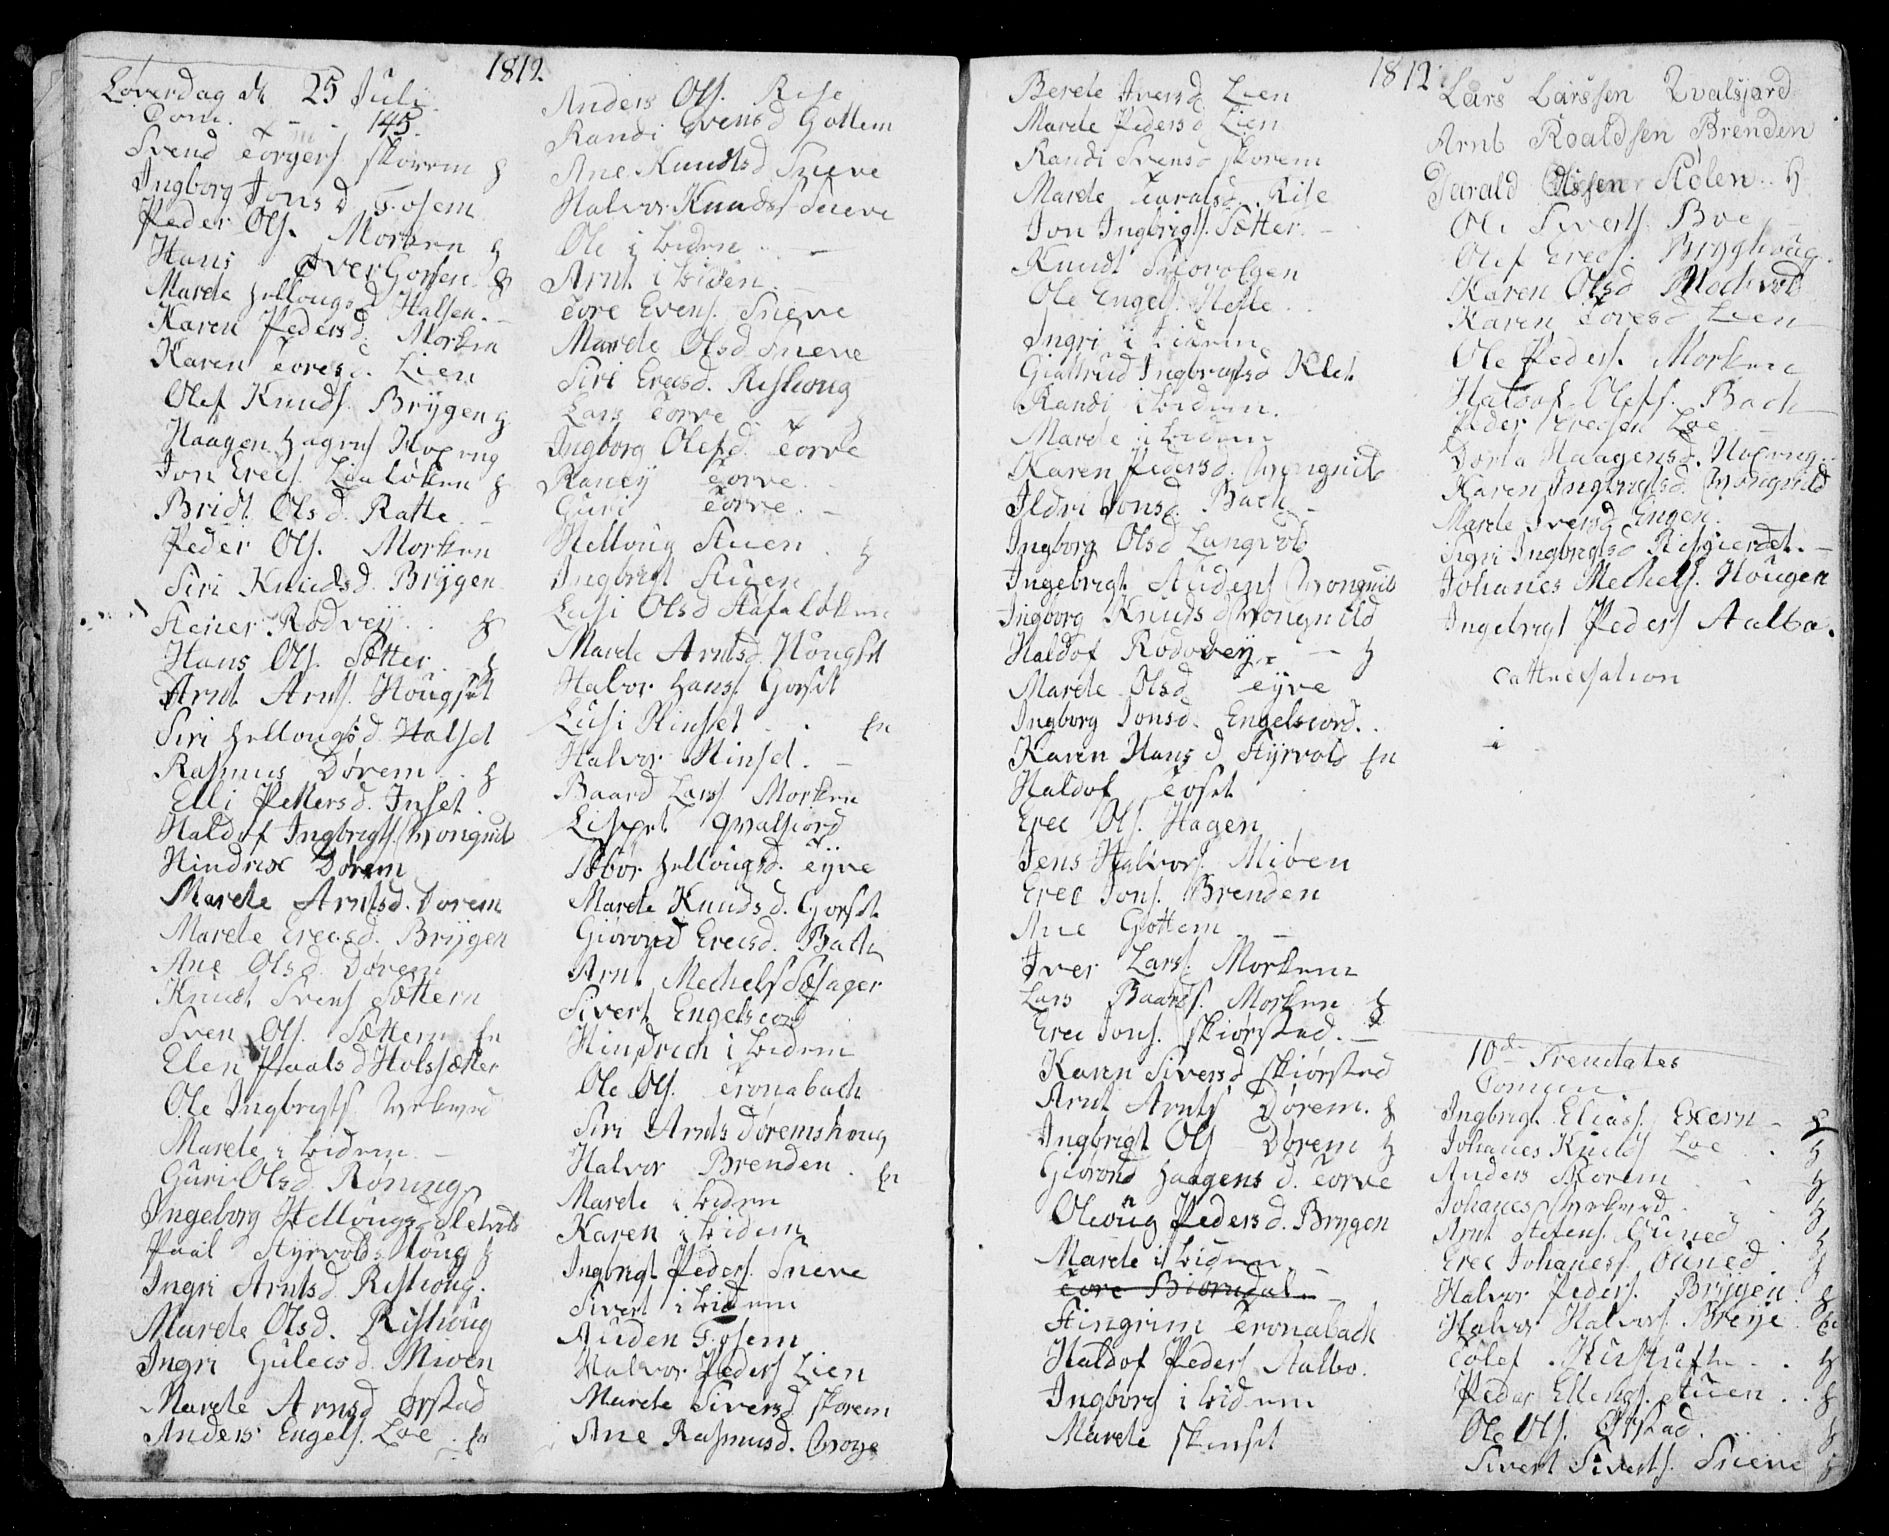 1812.
Løverdag d 25 Juli
Com. 145.
Svend Torgers. Skorem
Ingborg Jonsd. Fosem
Peder Ols. Morken
Hans Over Gorsen
Marete Hellougsd. Halsen.
Karen Pedersd. Morken
Karen Toresd. Lien
Olef Knuds. Brÿgen
Haagen Hagens
Jon Erecs. Lialøken
Bridt. Olsd. Ratte.
Peder Ols. Morken
Siri Knudsd. Brÿgen
Stener Rodveÿ
Hans Ols. Sætter.
Arnt Arnts. Hougset
Siri Hellougsd. Halset
Rasmus Dørem
Elli Pettersd. Inset.
Haldof Ingbrigts. Wongnild
Hindrix Dørem
Marete Arntsd. Dorem
Marete Erecsd. Brÿgen
Ane Olsd. Dørem
Knudt Svens Sættern
Sven Ols. Sættern En
Elen Paalsd Holssætter
Ole Ingbrigts
Marete i bidem.
Guri Olsd. Røning
Ingeborg Hellougsd Sletvold
Paal Styrvoldshoug
Ingri Arntsd. Rishoug.
Marete Olsd. Rishoug
Ingri Gulecsd. Mioen
Marete Arnsd Ørstad
Anders Engels. Loe. En
Anders Ols. Rise
Randi Evensd Gottem
Ane Knudtsd Sneve
Halvor Knuds Sneve
Ole i bidem
Arnt i bidem.
Tore Evens. Sneve
Marete Olsd Sneve
Siri Erecsd. Rishoug
Lars Torve
Ingborg Olefsd. Torve
Raneÿ Torve.
Guri Torve.
Helloug Stuen
Ingbrigt Stuen
Lusi Olsd Stafaløken
Marete Arntsd. Hougset
Halvor Hans. Gorset
Lusi Rinset. En
Halvor Rinset.
Baard Lars Morken
Lispet Qvalsiord
Sæbor Hellougsd. Eÿve
Marete Knudsd. Gorset
Giøroned Erecsd. Bach
Arnt Mechels Desager
Sivert Engelsiord
Hindrich i bidem
Ole Ols. Tronabach
Siri Arnts Døremshoug
Halvor Brenden. En
Marete i bidem
Karen i bidem
Ingbrigt Peders. Sneve
Sivert i bidem
Auden Fosem
Halvor Peders Lien
Marete Siversd Skorem
Ane Rasmusd. Woge
1812.
Berete Iversd Lien
Marete Pedersd Lien
Randi Svensd Skorem
Marete Taralsd. Rise
Jon Ingbrigts. Sætter.
Knudt
Ole Engels. Hofte
Ingri i bidem
Giattrud Ingbrigtsd Klet
Randi i bidem.
Marete i bidem
Karen Pedersd. Wongnild
Ildri Jonsd. Bach
Ingborg Olsd Langvold
Ingebrigt Audens Wongnild
Ingborg Knudsd Wongnild
Haldof Rodveÿ
Marete Olsd Eÿve
Ingborg Jonsd. Engelsiord.
Karen Hansd Stÿrvold En
Haldof Toset
Erec Ols. Hagen
Jens Halvors Mioen
Erec Jons. Brenden
Ane Gottem
Iver Lars. Morken
Lars Baards. Morken
Erec Jons. Skiørstad.
Karen Siversd Skiørstad
Arnt Arnts Dørem.
Ingbrigt Ols Dørem
Giørond Haagensd. Torve
Oloug Pedersd. Brygen
Marete i bidem
Tore Biorndal.
Stingrim Tronabach
Haldof Peders Aalbo.
Ingborg i bidem
Marete Skinset
Lars Larssen Qvalsjord
Arnt Roaldsen Brenden
Tarald Olssen Stølen
Ole Siverts. Boe
Olef Erecs. Brÿghoug.
Karen Olsd
Karen Toresd Lien
Ole Peders. Morken
Haldof Olefs. Bach
Peder Erecsen Loe
Dorta Haagensd.
Karen Ingbrigtsd. Wongnild
Marete Iversd Engen
Ingri Ingbrigtsd Risgierdet.
Johanes Mechels. Hougen
Ingebrigt Peders Aalbo.
Cathecisation
10de Trenitates
Comun
Ingbrigt Elias Exern
Johanes Knuds Loe
Anders Storem
Johanes
Arnt Stefens. Ouned
Erec Johaness. Ouned
Halvor Peders. Brÿgen
Halvor Halvors. Breÿe En
Tolef
Peder Ellengs. Stuen
Ole Ols. Ørstad.
Sivert Siverts. Sneve